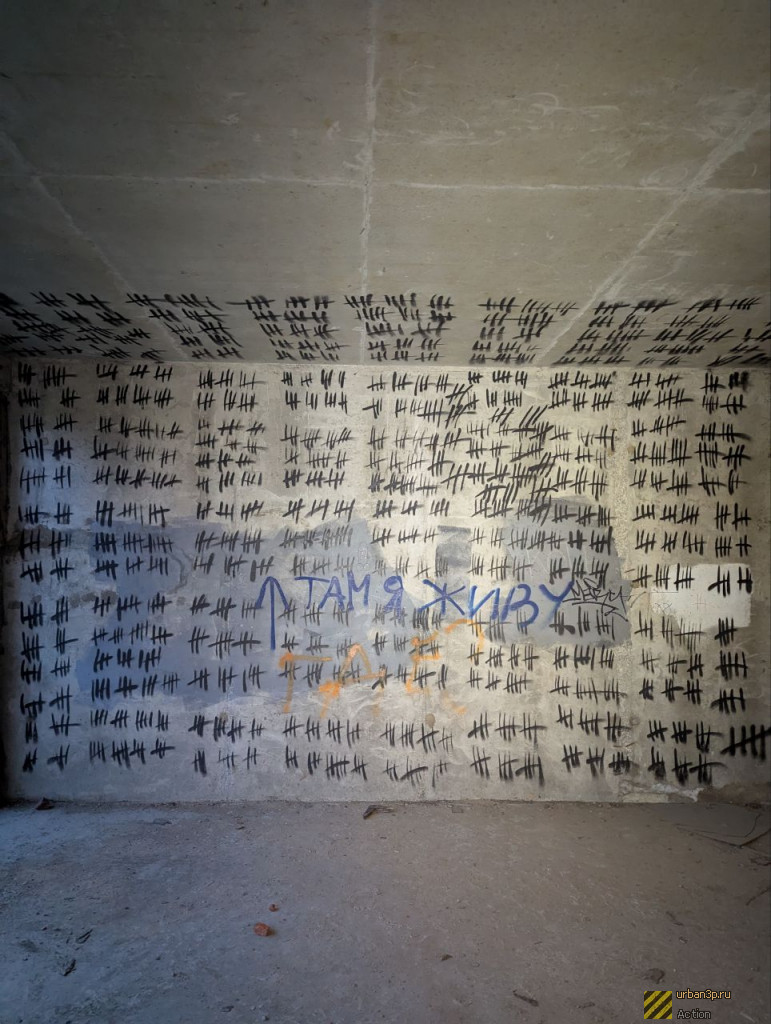 ↑ ТАМ Я ЖИВУ
ГДЕ?
urban3p.ru
Action